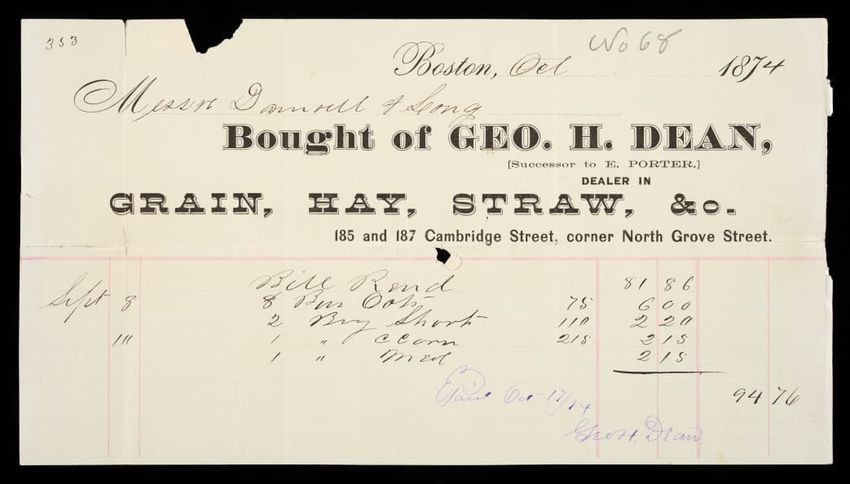 353
No 68
Boston, Oct 1874
Messrs & Long
Bought of GEO. H. DEAN,
[Successor to E. PORTER.]
DEALER IN
GRAIN, HAY, STRAW, &c.
185 and 187 Cambridge Street, corner North Grove Street.
Bill Rend 81 86
Sept 8 8 Bus Oats 75 6 00
2 Bag Shorts 110 2 20
1 " CCorn 215 2 15
1 " Meal 2 15
94 76
Paid Oct 17/74
Geo H. Dean